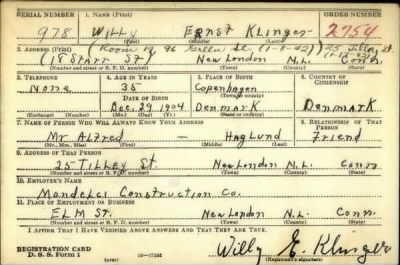 SERIAL NUMBER 1. NAME (Print) ORDER NUMBER
978 Willy Ernst Klinger 2754
(First) (Middle) (Last)
2. ADDRESS (Print) (Room 19, 96 St. (1-8-42) 25 Tilley St
(18 Starr St) New London N.L. Conn
(Number and street or R. F. D. number) (Town) (County) (State)
3. TELEPHONE 4. AGE IN YEARS 5. PLACE OF BIRTH 6. COUNTRY OF CITIZENSHIP
None 35 Copenhagen
DATE OF BIRTH (Town or county)
Dec. 29, 1904 Denmark Denmark
(Exchange) (Number) (Mo.) (Day) (Yr.) (State or country)
7. NAME OF PERSON WHO WILL ALWAYS KNOW YOUR ADDRESS 8. RELATIONSHIP OF THAT PERSON
Mr Alfred — Haglund Friend
(Mr., Mrs., Miss) (First) (Middle) (Last)
9. ADDRESS OF THAT PERSON
25 Tilley St. New London N.L. Conn
(Number and street or R. F. D. number) (Town) (County) (State)
10. EMPLOYER'S NAME
Construction Co.
11. PLACE OF EMPLOYMENT OR BUSINESS
Elm St. New London N.L. Conn
(Number and street or R. F. D. number) (Town) (County) (State)
I AFFIRM THAT I HAVE VERIFIED ABOVE ANSWERS AND THAT THEY ARE TRUE.
REGISTRATION CARD
D. S. S. Form 1 (over) 16—17105
Willy E. Klinger
(Registrant's signature)